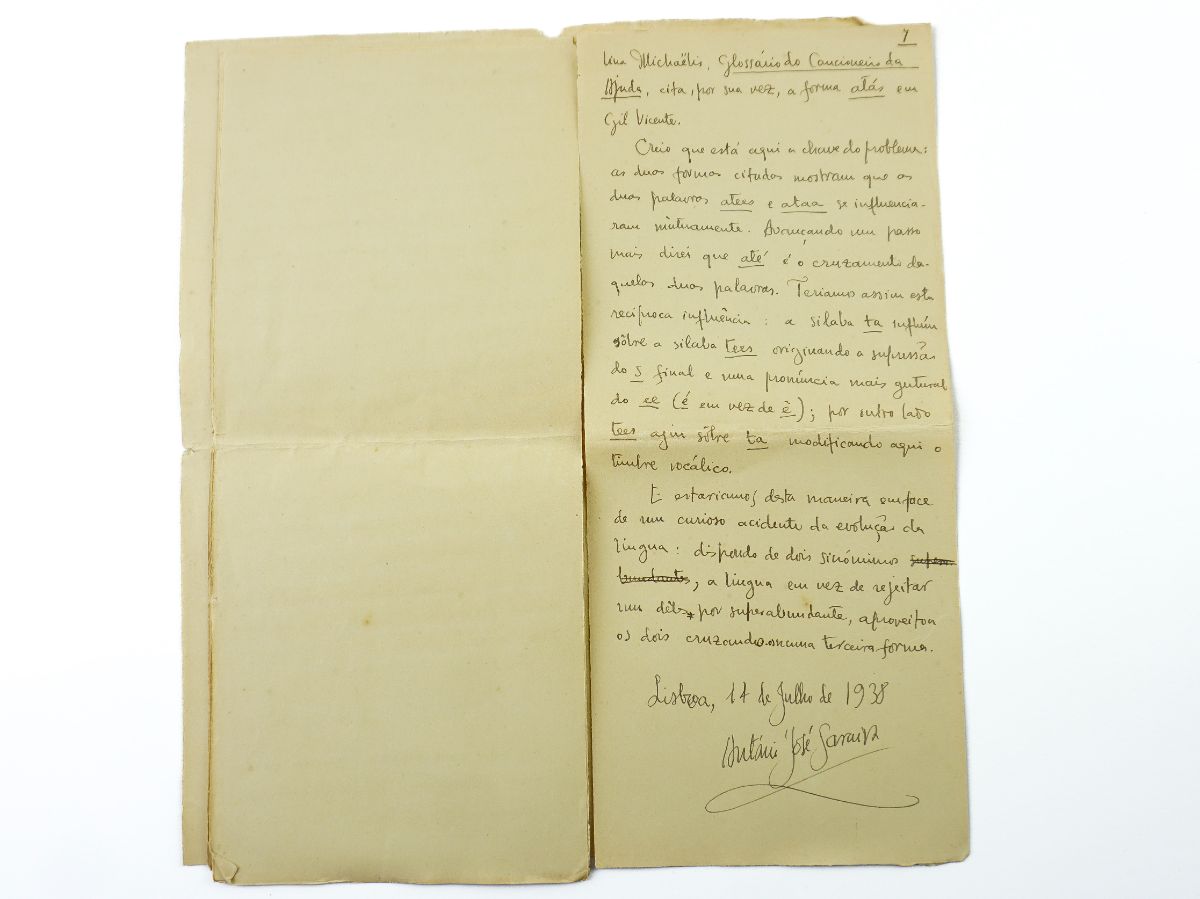 7
lina Michaëlis, Glossário do Cancioneiro da
Ajuda, cita, por sua vez, a forma atás em
Gil Vicente.
Creio que está aqui a chave do problema:
as duas formas citadas mostram que as
duas palavras atees e ataa se influencia-
ram mùtuamente. Avançando um passo
mais direi que até é o cruzamento da-
quelas duas palavras. Teriamos assim esta
recíproca influência: a silaba ta influiu
sôbre a silaba tees originando a supressão
do s final e uma pronúncia mais gutural
do ee (é em vez de ê); por outro lado
tees agiu sôbre ta modificando aqui o
timbre vocálico.
E estariamos, desta maneira em face
de um curioso acidente da evolução da
língua: dispondo de dois sinónimos supera-
bundantes, a língua em vez de rejeitar
um dêles por superabundante, aproveitou
os dois cruzando-os numa terceira forma.
Lisboa, 17 de Julho de 1938
António José Saraiva